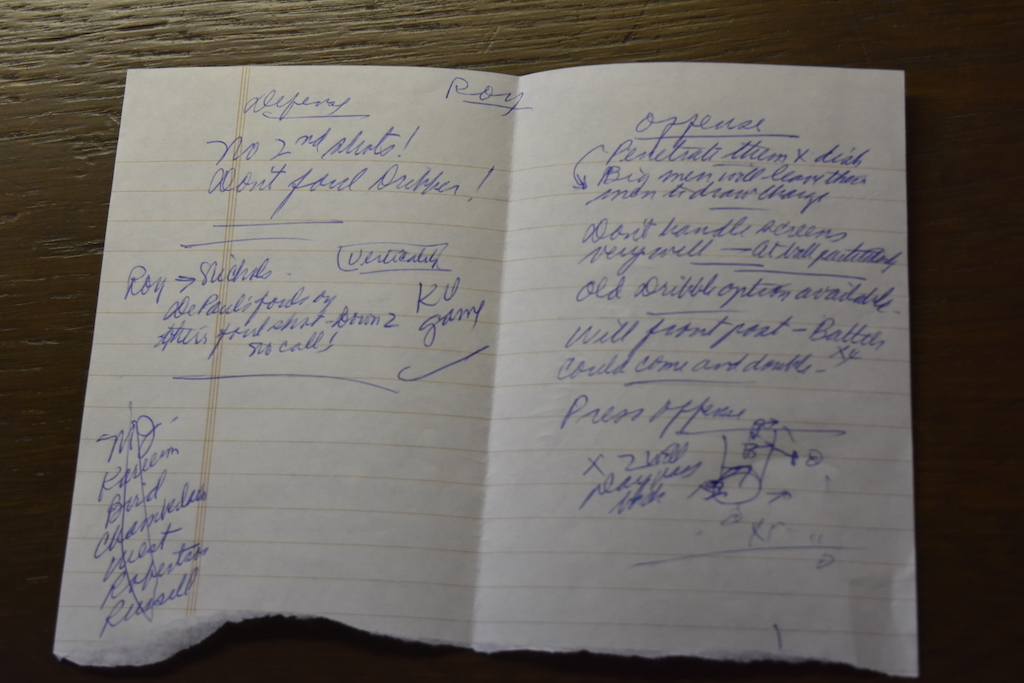 Roy
Defense
No 2nd shots!
Don't foul Dribbler!
Verticality
Roy → Nichols
DePaul fouls on
their foul shot - Down 2
No call!
KU
game
MJ
Kareem
Bird
Chamberlain
West
Robertson
Russell
Offense
Penetrate them & dish
Big men will leave their
men to draw charge
Don't handle screens
very well — at ball particularly
Old Dribble option available
Will front post - Battier
X4
Could come and double -
Press Offense
X 2 will
play pass
B
X5